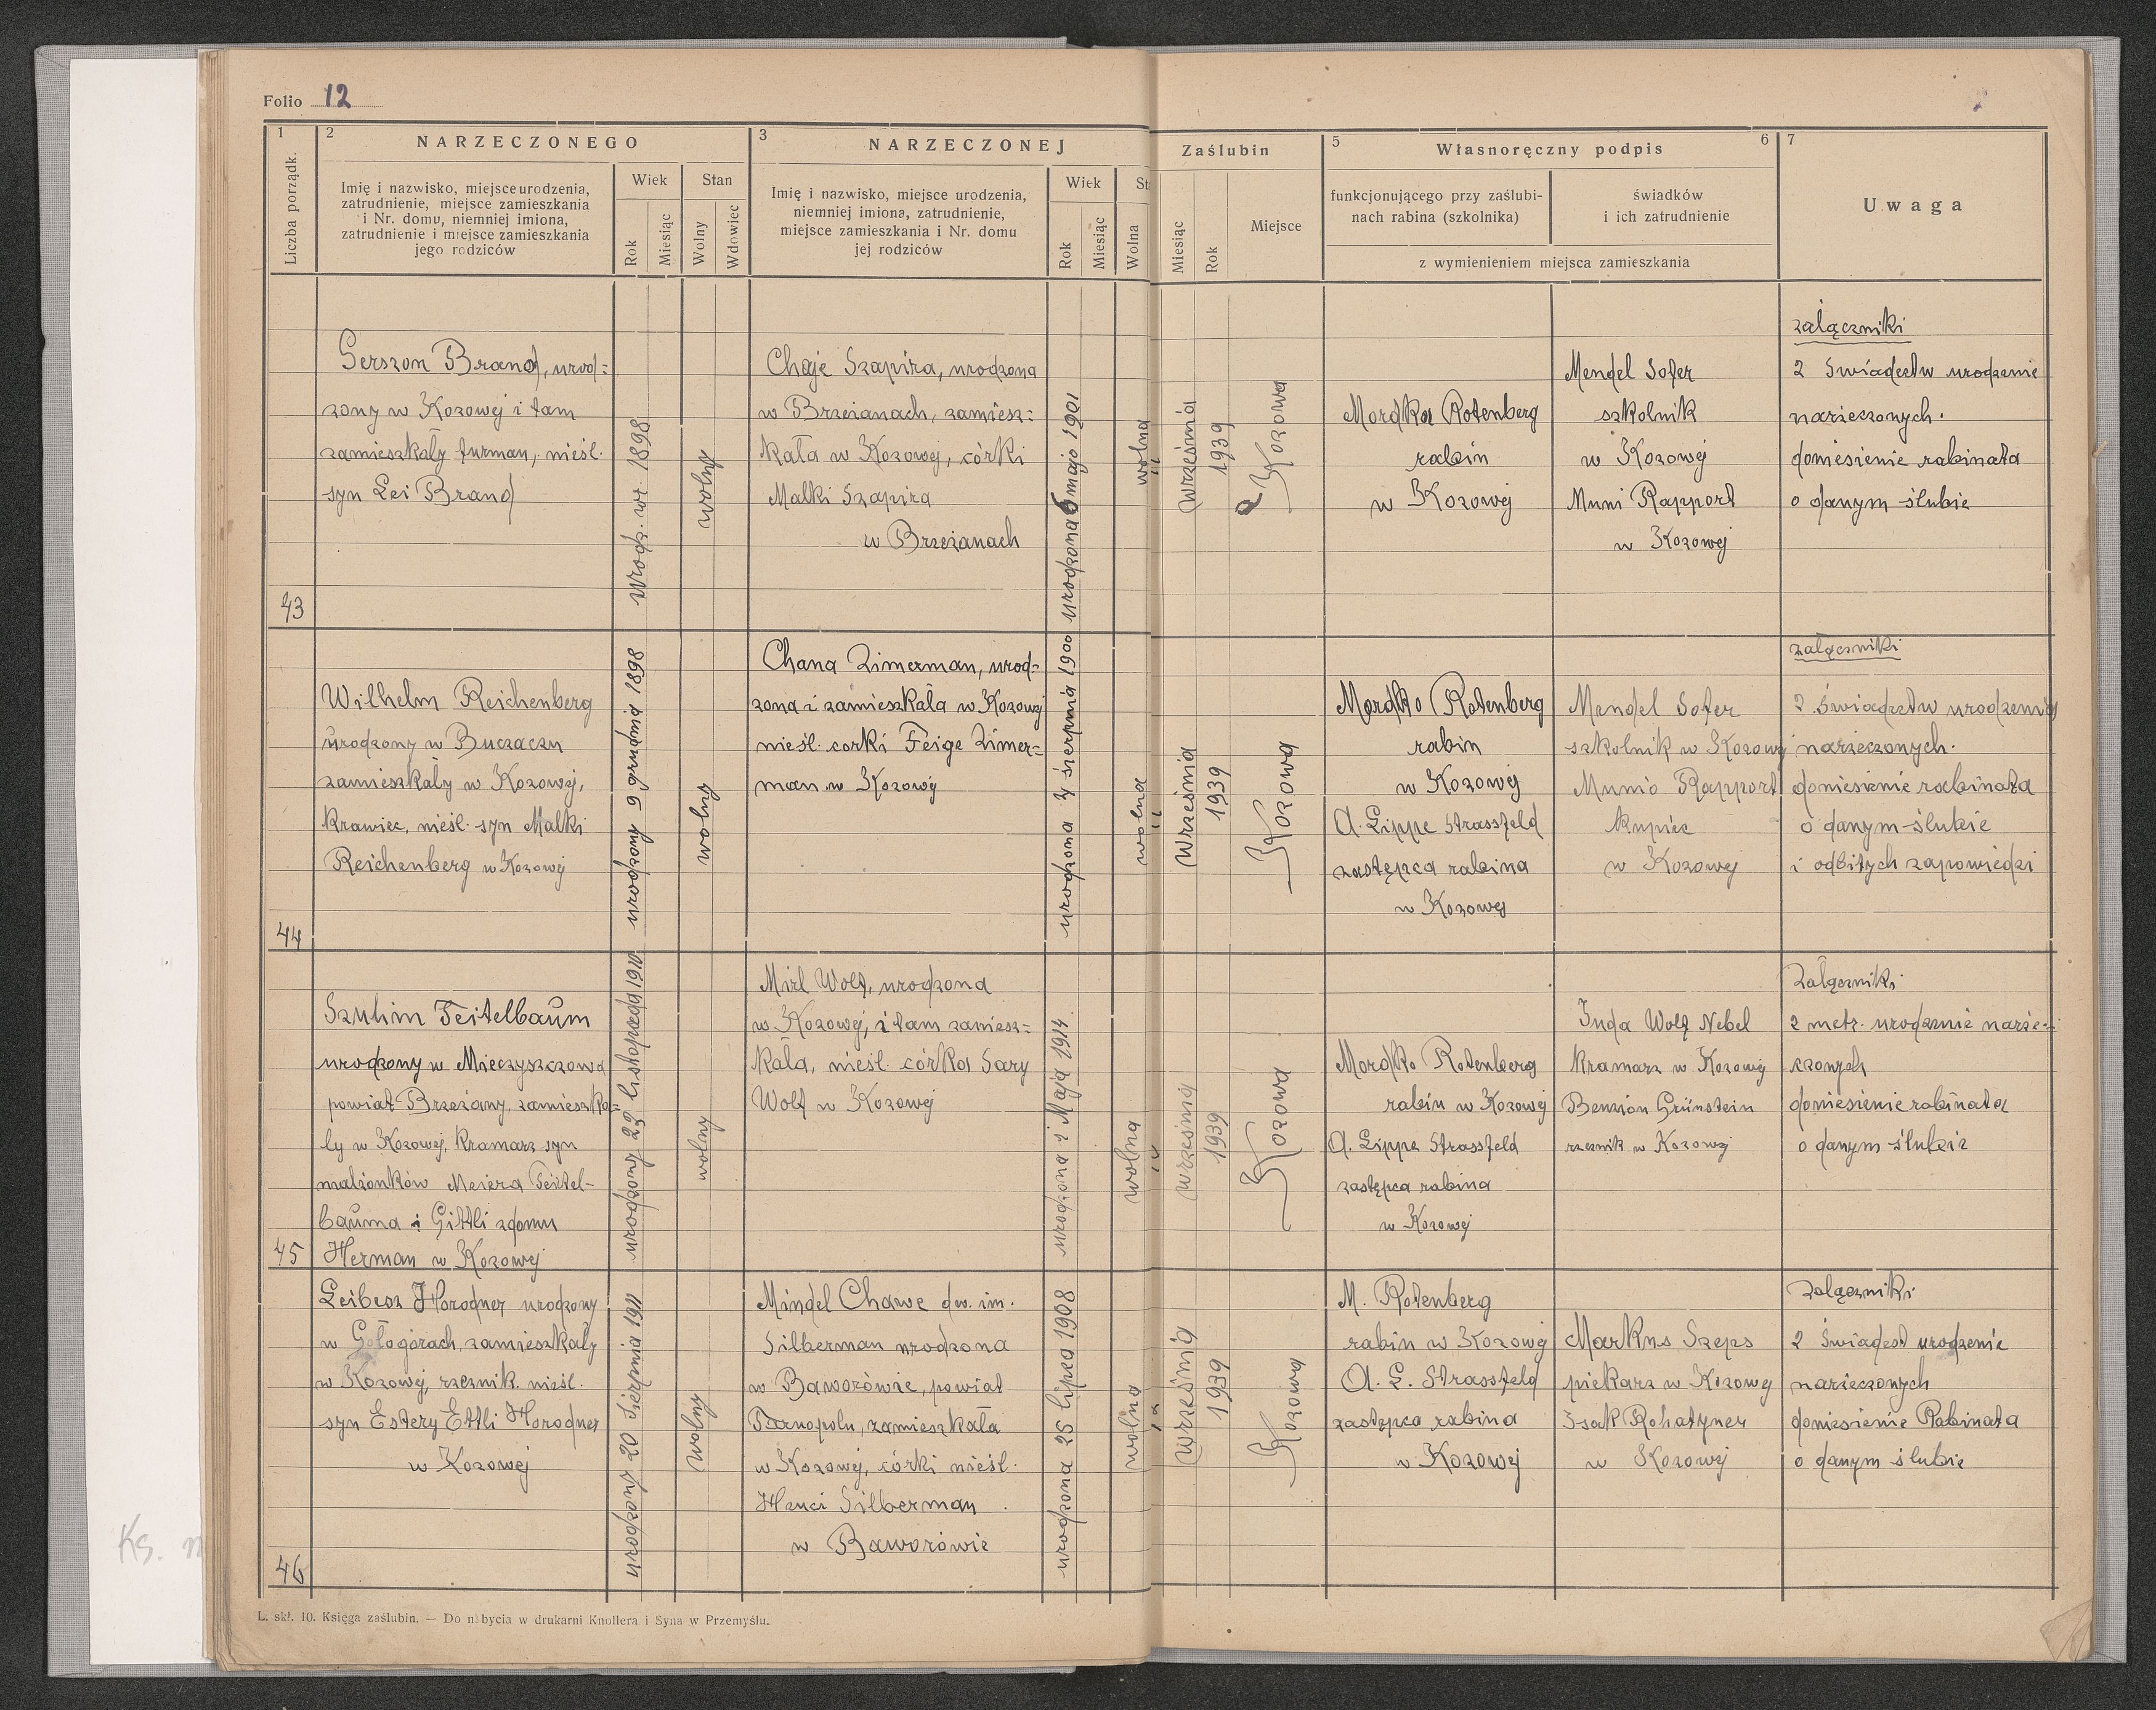 Folio 12
1
2
NARZECZONEGO
3
NARZECZONEJ
Zaślubin
5
Własnoręczny podpis
6
7
Liczba porządk.
Imię i nazwisko, miejsce urodzenia,
zatrudnienie, miejsce zamieszkania
i Nr. domu, niemniej imiona,
zatrudnienie i miejsce zamieszkania
jego rodziców
Wiek
Rok
Miesiąc
Stan
Wolny
Wdowiec
Imię i nazwisko, miejsce urodzenia,
niemniej imiona, zatrudnienie,
miejsce zamieszkania i Nr. domu
jej rodziców
Wiek
Rok
Miesiąc
Wolna
Miesiąc
Rok
Miejsce
funkcjonującego przy zaślubi-
nach rabina (szkolnika)
świadków
i ich zatrudnienie
z wymienieniem miejsca zamieszkania
Uwaga
43
Gerszon Brand, urod=
zony w Kozowej i tam
zamieszkały furman, nieśl.
syn Lei Brand
Urodz. w r. 1898
wolny
Chaje Szapira, urodzona
w Brzeżanach, zamiesz=
kała w Kozowej, córki
Malki Szapira
w Brzeżanach
urodzona 6 maja 1901
wolna
Września
1939
Kozowa
Mordko Rotenberg
rabin
w Kozowej
Mendel Sofer
szkolnik
w Kozowej
Muni Rapport
w Kozowej
załączniki
2 świadectw urodzenie
narzeczonych.
doniesienie rabinata
o danym ślubie
44
Wilhelm Reichenberg
urodzony w Buczaczu
zamieszkały w Kozowej,
krawiec, nieśl. syn Malki
Reichenberg w Kozowej
urodzony 9 grudnia 1898
wolny
Chana Zimerman, urod=
zona i zamieszkała w Kozowej
nieśl. corki Feige Zimer=
man w Kozowej
urodzona 4 sierpnia 1900
wolna
Września
1939
Kozowa
Mordko Rotenberg
rabin
w Kozowej
A. Lippe Strassfeld
zastępca rabina
w Kozowej
Mendel Sofer
szkolnik w Kozowej
Munio Rapport
kupiec
w Kozowej
załączniki
2 świadectw urodzenia
narzeczonych.
doniesienie rabinata
o danym ślubie
i odbitych zapowiedzi
45
Szulim Teitelbaum
urodzony w Mieczyszczowa
powiat Brzeżany, zamieszka=
ły w Kozowej, kramarz syn
małżonków Meiera Teitel-
bauma i Gittli z domu
Herman w Kozowej
urodzony 23 listopada 1910
wolny
Mirl Wolf, urodzona
w Kozowej, i tam zamiesz=
kała, nieśl. córka Sary
Wolf w Kozowej
urodzona 1 Maja 1914
wolna
Września
1939
Kozowa
Mordko Rotenberg
rabin w Kozowej
A. Lippe Strassfeld
zastępca rabina
w Kozowej
Juda Wolf Nebel
kramarz w Kozowej
Benzion Grünstein
rzeznik w Kozowej
Załączniki
2 metr. urodzenie narze-
czonych
doniesienie rabinata
o danym ślubie
46
Leibesz Horodner urodzony
w Gołogórach, zamieszkały
w Kozowej, rzeznik. nieśl.
syn Estery Ettli Horodner
w Kozowej
urodzony 20 sierpnia 1911
wolny
Mindel Chawe dw. im.
Silberman urodzona
w Baworówie, powiat
Tarnopolu, zamieszkała
w Kozowej, córki nieśl.
Henci Silberman
w Baworówie
urodzona 25 lipca 1908
wolna
Września
1939
Kozowa
M. Rotenberg
rabin w Kozowej
A. L. Strassfeld
zastępca rabina
w Kozowej
Markus Szeps
piekarz w Kozowej
Isak Rohatyner
w Kozowej
Załączniki
2 świadect urodzenie
narzeczonych
doniesienie Rabinata
o danym ślubie
L. skł. 10. Księga zaślubin. — Do nabycia w drukarni Knollera i Syna w Przemyślu.
Ks.